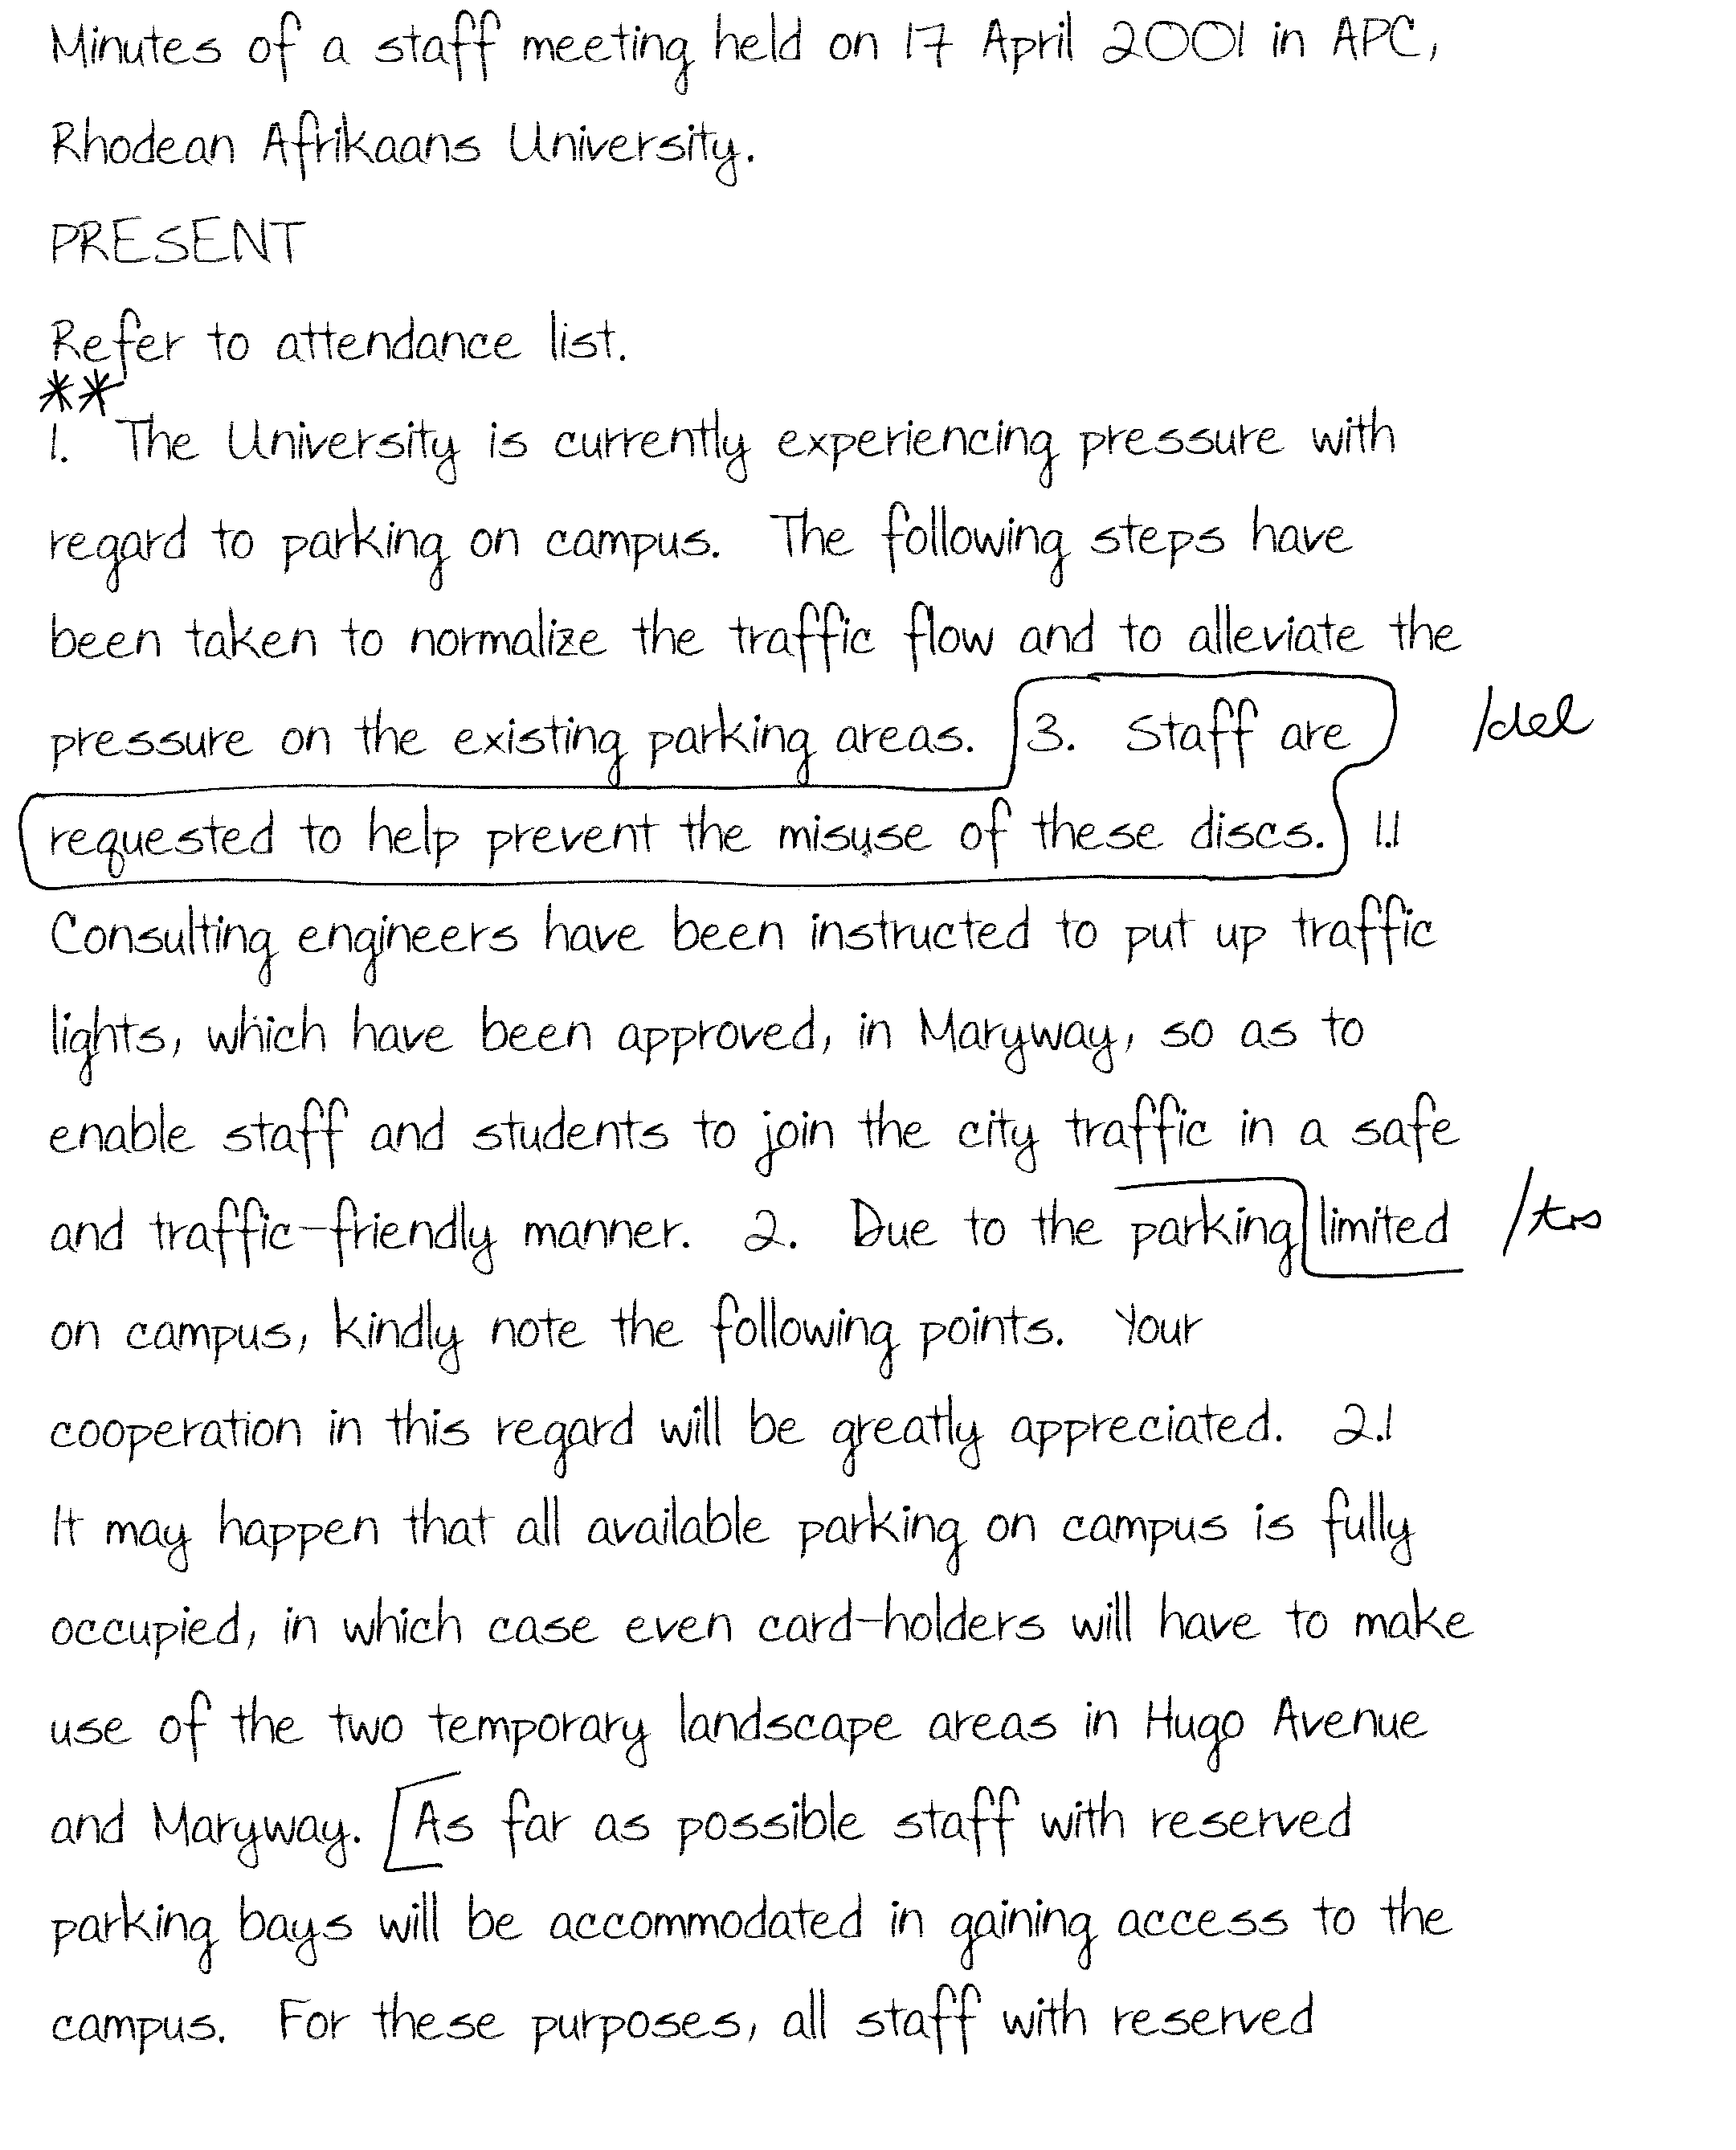 Minutes of a staff meeting held on 17 April 2001 in APC,
Rhodean Afrikaans University.
PRESENT
Refer to attendance list.
**
1. The University is currently experiencing pressure with
regard to parking on campus. The following steps have
been taken to normalize the traffic flow and to alleviate the
pressure on the existing parking areas. 3. Staff are /del
requested to help prevent the misuse of these discs. 1.1
Consulting engineers have been instructed to put up traffic
lights, which have been approved, in Maryway, so as to
enable staff and students to join the city traffic in a safe
and traffic-friendly manner. 2. Due to the parking limited /trs
on campus, kindly note the following points. Your
cooperation in this regard will be greatly appreciated. 2.1
It may happen that all available parking on campus is fully
occupied, in which case even card-holders will have to make
use of the two temporary landscape areas in Hugo Avenue
and Maryway. [As far as possible staff with reserved
parking bays will be accommodated in gaining access to the
campus. For these purposes, all staff with reserved